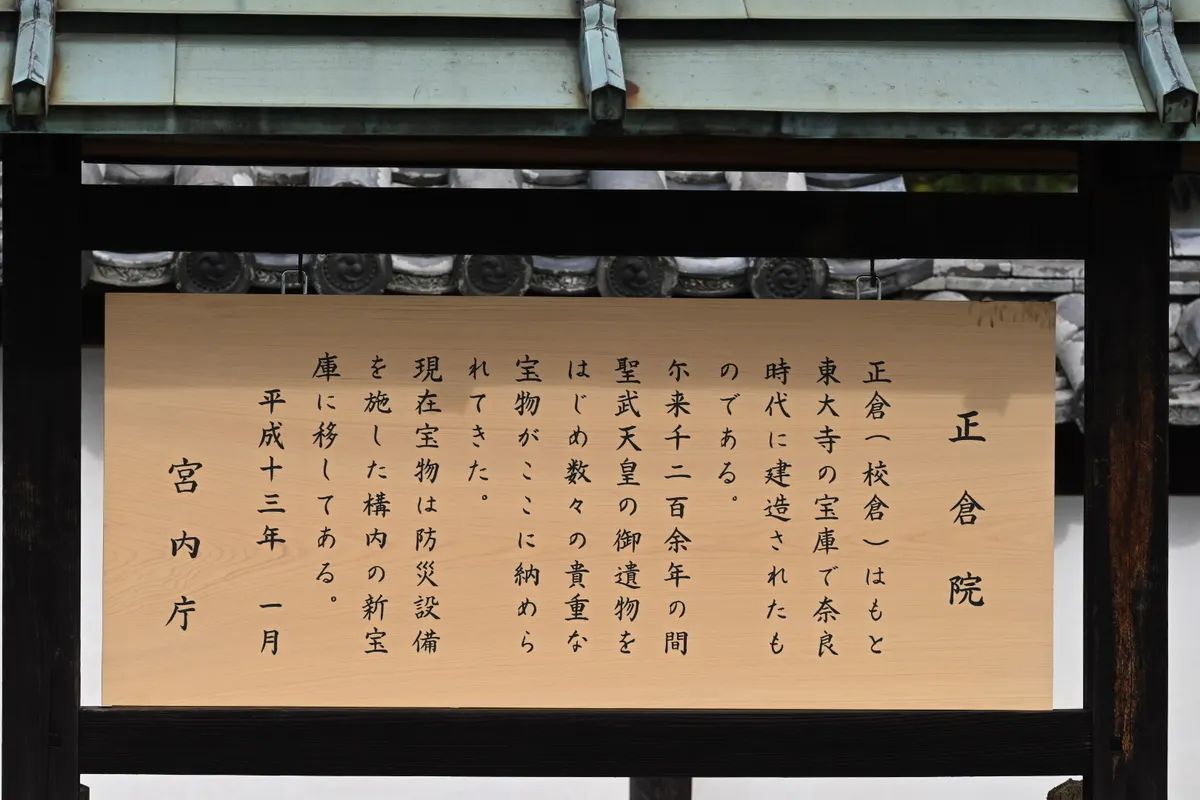 正倉院
正倉（校倉）はもと
東大寺の宝庫で奈良
時代に建造されたも
のである。
尓来千二百余年の間
聖武天皇の御遺物を
はじめ数々の貴重な
宝物がここに納めら
れてきた。
現在宝物は防災設備
を施した構内の新宝
庫に移してある。
平成十三年 一月
宮内庁